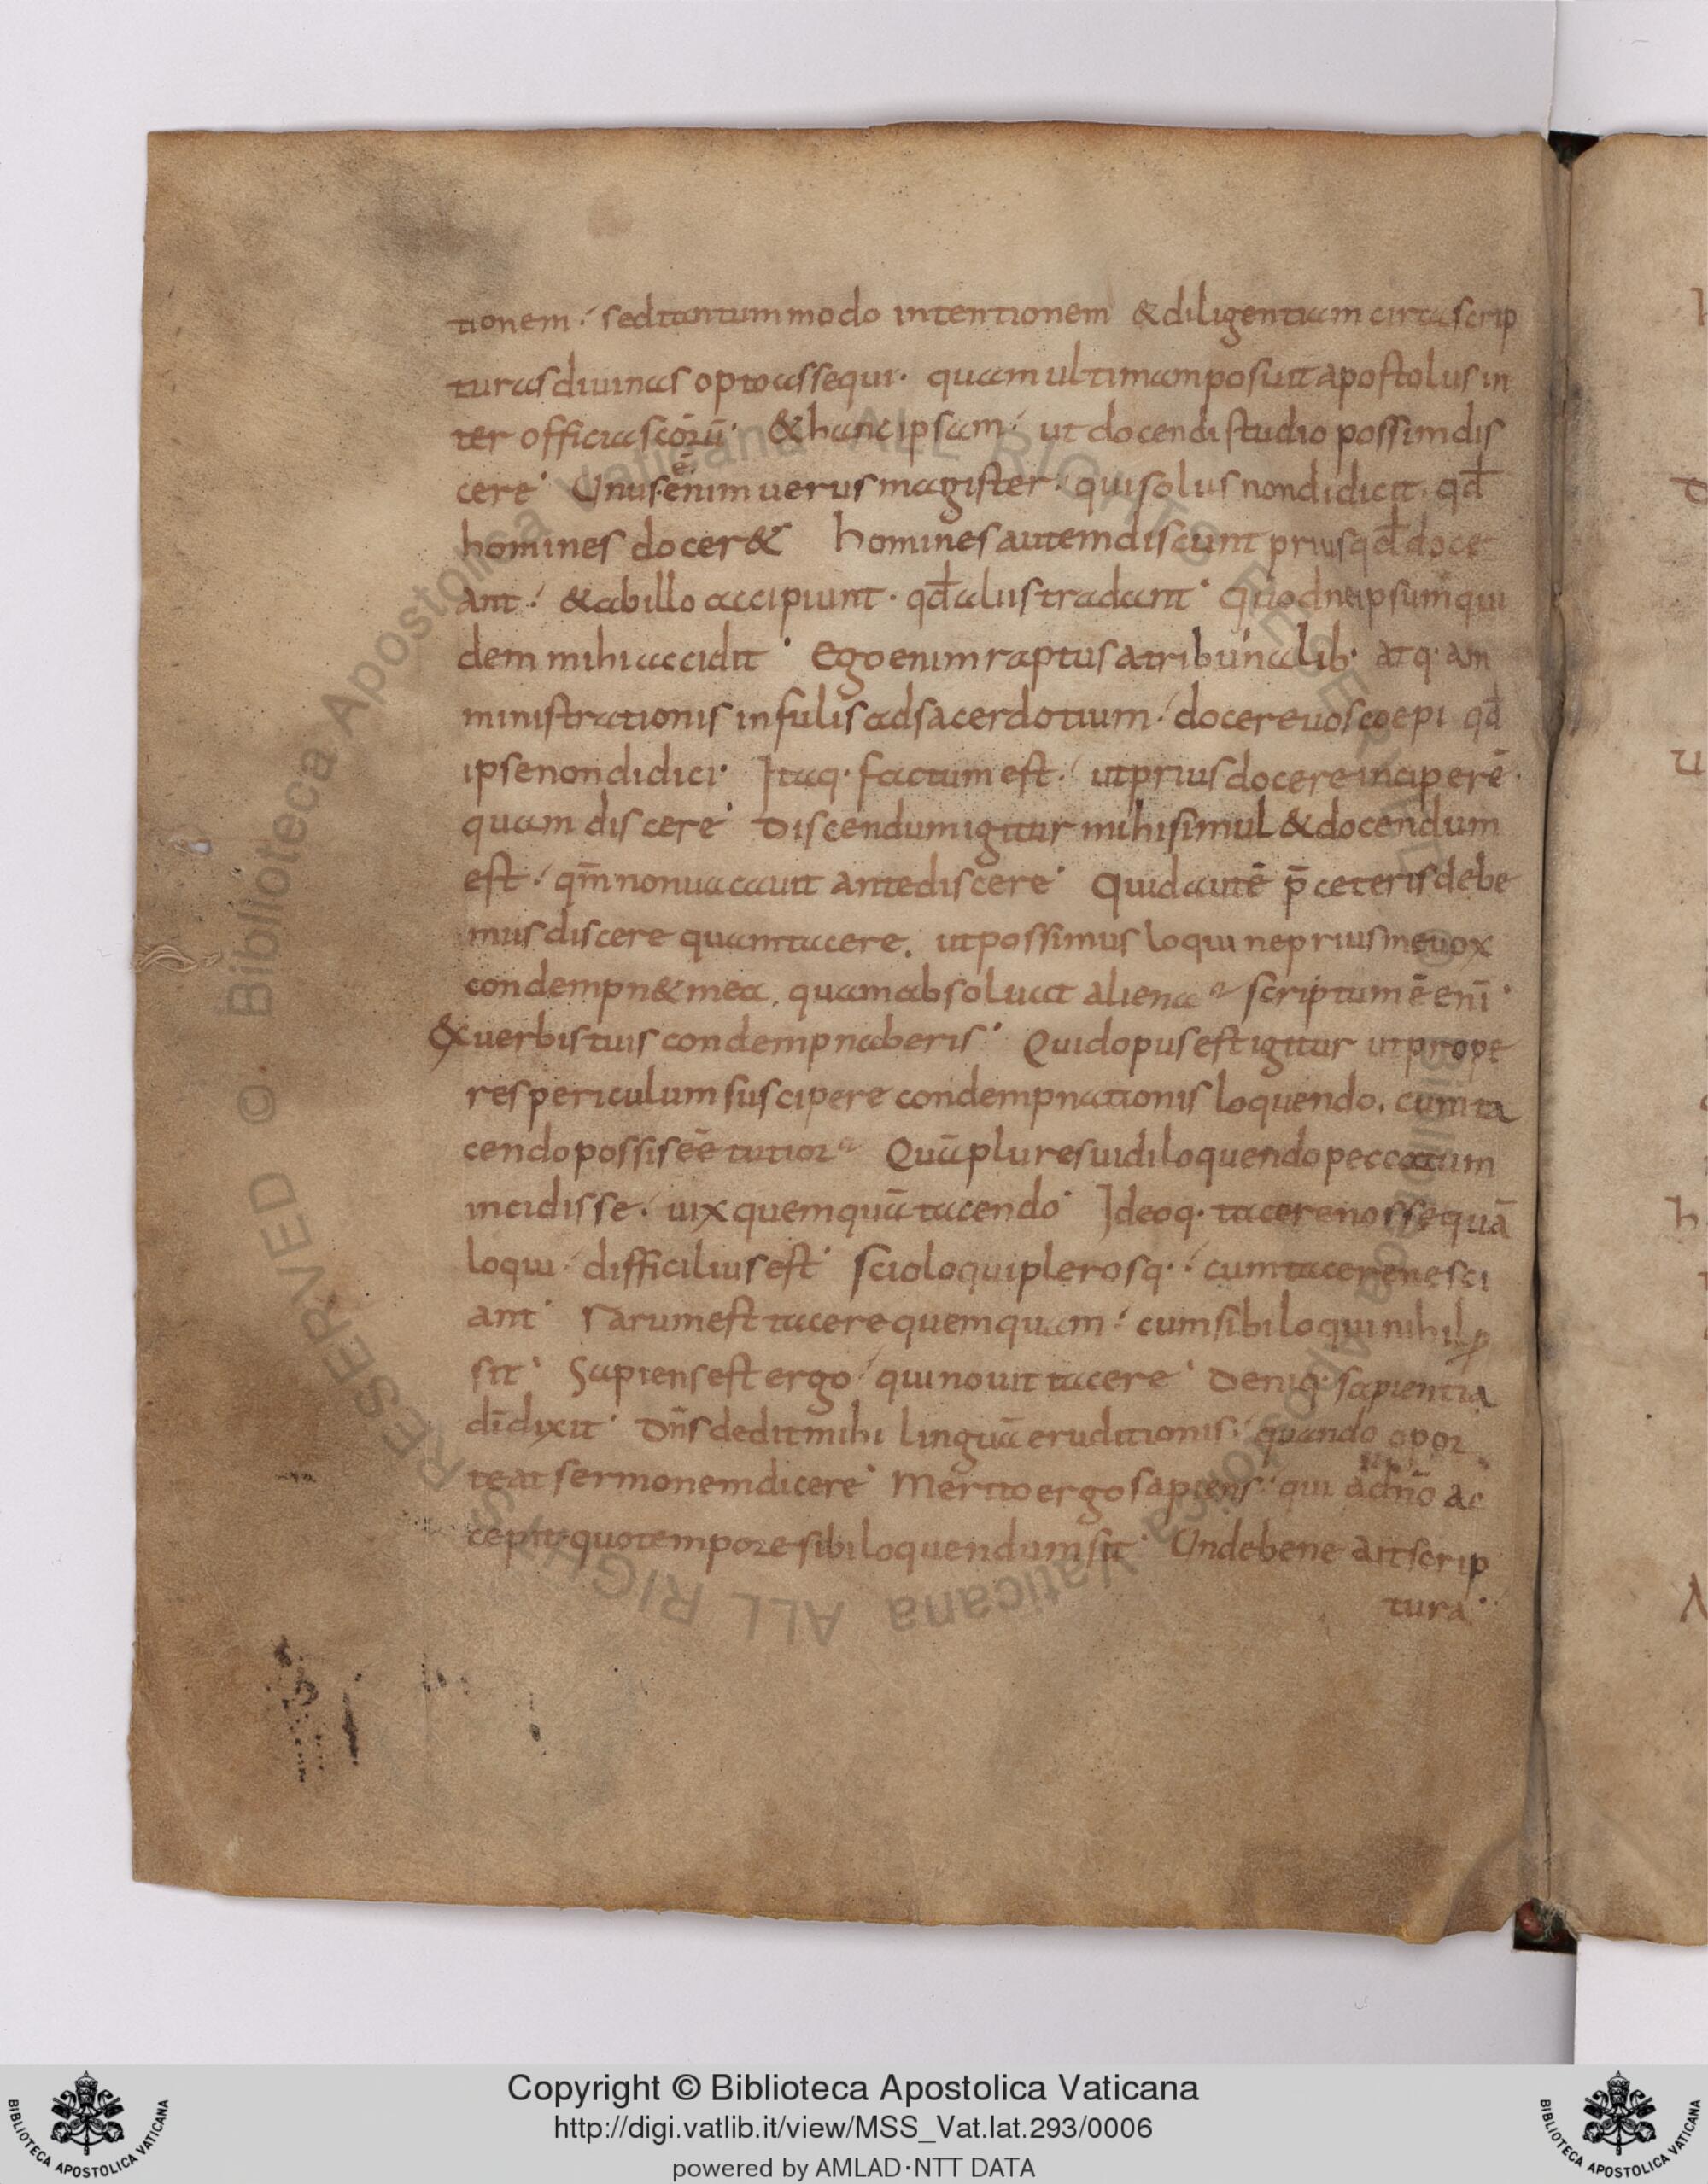 tionem· sed tantummodo intentionem & diligentiam circa scrip
turas diuinas opto assequi· quam ultimam posuit apostolus in
ter officia scōrū· & hanc ipsam· ut docendi studio possim dis
cere· Unus ē enim uerus magister· qui solus non didicit· qđ
homines docer& homines autem discunt prius qđ doce
ant· & ab illo accipiunt· qđ aliis tradant· Quod ne ipsum qui
dem mihi accidit· Ego enim raptus a tribunalib· atq· am
ministrationis infulis ad sacerdotium· docere uos coepi qđ
ipse non didici· Itaq· factum est· ut prius docere inciperē·
quam discere· Discendum igitur mihi simul & docendum
est· qm̄ non uacauit ante discere· Quid autē p̄ ceteris debe
mus discere quam tacere. ut possimus loqui ne prius me uox
condempn& mea. quam absoluat aliena scriptum ē enī·
& uerbis tuis condempnaberis· Quid opus est igitur ut prope
res periculum suscipere condempnationis loquendo. cum ta
cendo possis eē tutior Quā plures uidi loquendo peccatum
incidisse· uix quemquā tacendo· Ideoq· tacere nosse quā
loqui· difficilius est· scio loqui plerosq·· cum tacere nesci
ant· rarum est tacere quemquam· cum sibi loqui nihil p
sit· Sapiens est ergo· qui nouit tacere· Deniq· sapientia
dī dixit· Dn̄s dedit mihi linguā eruditionis· quando opor
teat sermonem dicere· Merito ergo sapiens· qui a dn̄o ac
cepit quo tempore sibi loquendum sit· Unde bene ait scrip
tura·
Copyright © Biblioteca Apostolica Vaticana
http://digi.vatlib.it/view/MSS_Vat.lat.293/0006
powered by AMLAD·NTT DATA